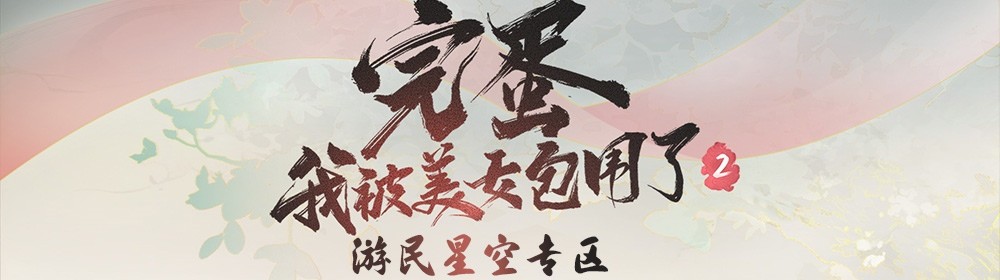 完蛋
我被美女包用了2
游民星空专区